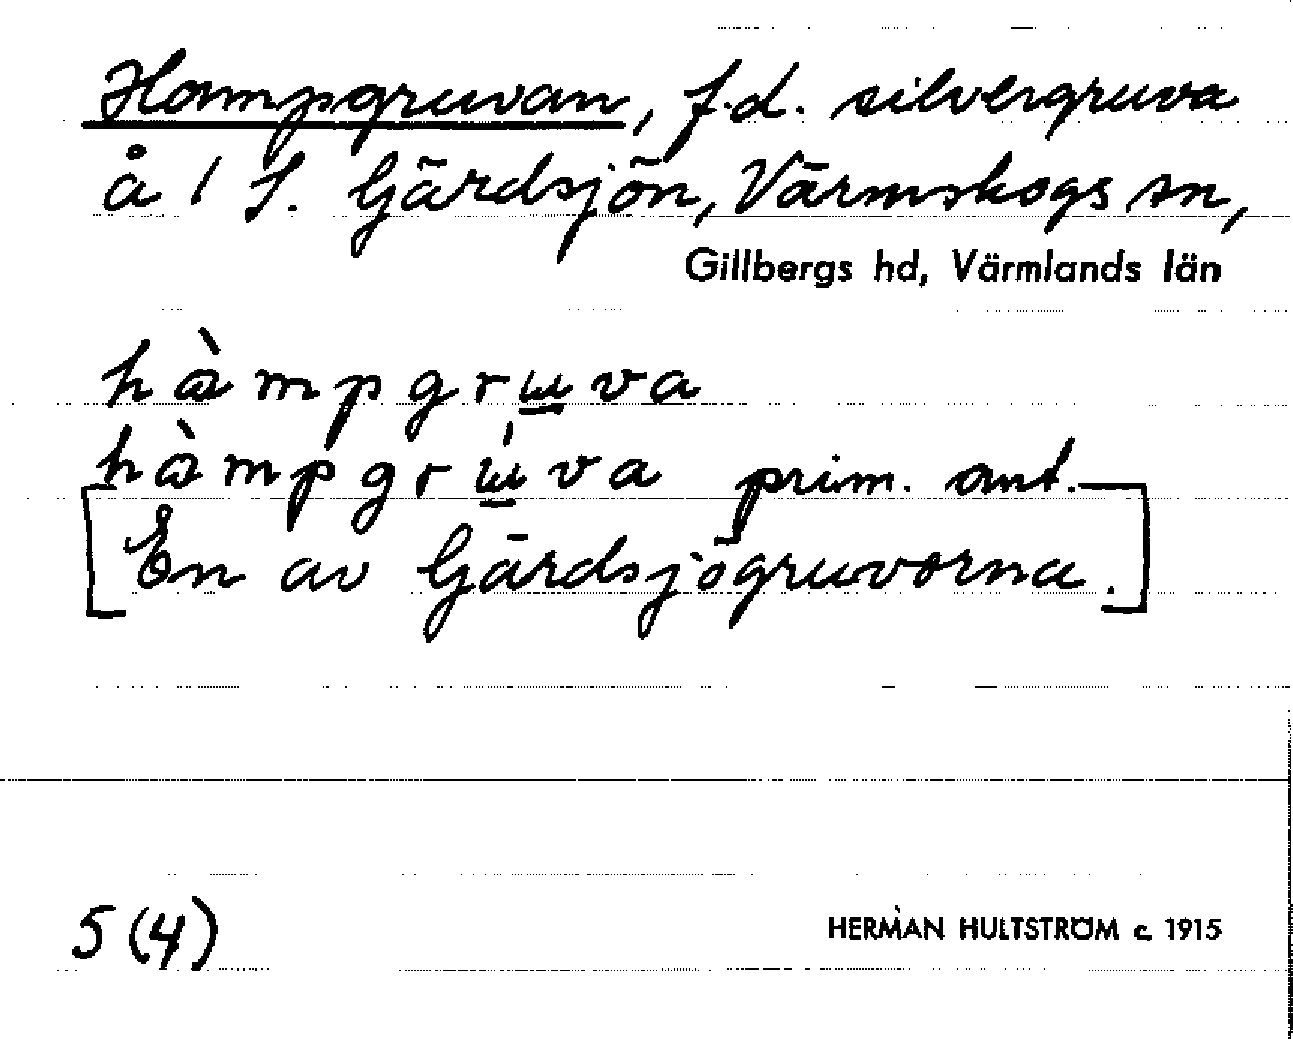 Hampgruvan, f.d. silvergruva
å 1 S. Gärdsjön, Värmskogs sn,
Gillbergs hd, Värmlands län
hàmpgrɯva
hàmpgrɯ́va prim. ant.
[En av Gärdsjögruvorna.]
5 (4)
HERMAN HULTSTRÖM c. 1915